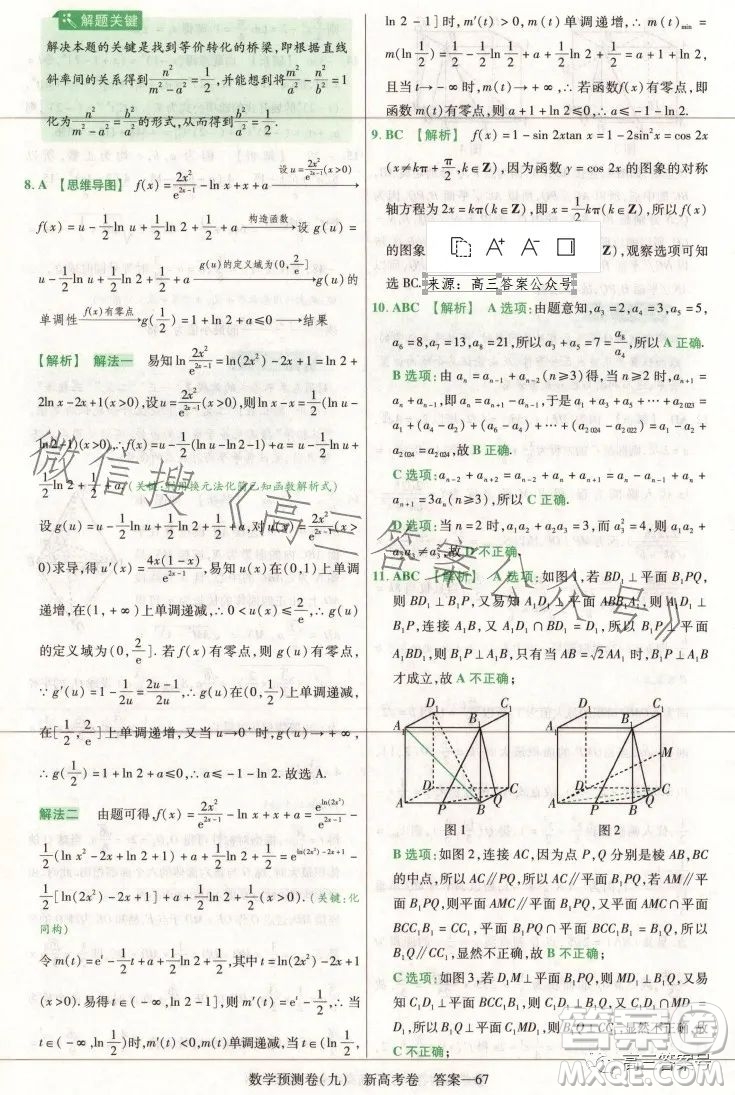 解题关键
解决本题的关键是找到等价转化的桥梁,即根据直线
斜率间的关系得到n²/(m²-a²)=1/2,并能想到将m²/a²-n²/b²=1
化为n²/(m²-a²)=b²/a²的形式,从而得到b²/a²=1/2.
8. A 【思维导图】 f(x)=2x²/e^(2x-1)-ln x+x+a 设u=2x²/e^(2x-1)(x>0)
f(x)=u-1/2ln u+1/2ln 2+1/2+a 构造函数 设 g(u)=
u-1/2ln u+1/2ln 2+1/2+a g(u)的定义域为(0,2/e] g(u)的
单调性 f(x)有零点 g(1/2)=1+ln 2+a≤0→结果
【解析】 解法一 易知ln 2x²/e^(2x-1)=ln(2x²)-2x+1=ln 2+
2ln x-2x+1(x>0),设u=2x²/e^(2x-1)(x>0),则ln x-x=1/2(ln u-
ln 2-1)(x>0),∴f(x)=u-1/2(ln u-ln 2-1)+a=u-1/2ln u+
1/2ln 2+1/2+a.(关键:利用换元法化简已知函数解析式)
设g(u)=u-1/2ln u+1/2ln 2+1/2+a,对u(x)=2x²/e^(2x-1)(x>
0)求导,得u′(x)=4x(1-x)/e^(2x-1),易知u(x)在(0,1)上单调
递增,在(1,+∞)上单调递减,∴0<u(x)≤2/e,∴g(u)
的定义域为(0,2/e].若f(x)有零点,则g(u)有零点.
∵g′(u)=1-1/2u=(2u-1)/2u,∴g(u)在(0,1/2)上单调递减,
在[1/2,2/e]上单调递增,又当u→0⁺时,g(u)→+∞,
∴g(1/2)=1+ln 2+a≤0,∴a≤-1-ln 2.故选A.
解法二 由题可得,f(x)=2x²/e^(2x-1)+a=e^(ln(2x²))/e^(2x-1)-
1/2(ln x²-2x+ln 2+1)+a+1/2ln 2+1/2=e^(ln(2x²)-2x+1)-
1/2[ln(2x²)-2x+1]+a+1/2ln 2+1/2.(关键:化
同构)
令m(t)=eᵗ-1/2t+a+1/2ln 2+1/2,其中t=ln(2x²)-2x+1
(x>0).易得t∈(-∞,ln 2-1],则m′(t)=eᵗ-1/2,∴当
t∈(-∞,ln 1/2)时,m′(t)<0,m(t)单调递减,当t∈(ln 1/2,
ln 2-1]时,m′(t)>0,m(t)单调递增,∴m(t)min=
m(ln 1/2)=1/2-1/2ln 1/2+a+1/2ln 2+1/2=a+1+ln 2,
且当t→-∞时,m(t)→+∞,∴若函数f(x)有零点,即
函数m(t)有零点,则a+1+ln 2≤0,∴a≤-1-ln 2.
9. BC 【解析】 f(x)=1-sin 2xtan x=1-2sin²x=cos 2x
(x≠kπ+π/2,k∈Z),因为函数y=cos 2x的图象的对称
轴方程为2x=kπ(k∈Z),即x=1/2kπ(k∈Z),所以f(x)
的图象
(k∈Z),观察选项可知
选BC.
来源:高三答案公众号
10. ABC 【解析】 A选项:由题意知,a₃=2,a₄=3,a₅=5,
a₆=8,a₇=13,a₈=21,所以a₇=3+2a₅=a₈/a₄,所以A正确.
B选项:由aₙ=aₙ₋₁+aₙ₋₂(n≥3)得,当n≥2时,aₙ₊₁=
aₙ+aₙ₋₁,即aₙ=aₙ₊₁-aₙ₋₁,于是a₁+a₃+…+a₂₀₂₃=
a₁+(a₄-a₂)+(a₆-a₄)+…+(a₂₀₂₄-a₂₀₂₂)=a₁-a₂+
a₂₀₂₄=a₂₀₂₄,故B正确.
C选项:aₙ₋₂+aₙ₊₂=aₙ-aₙ₋₁+aₙ+aₙ₊₁=2aₙ-aₙ₋₁+aₙ+
aₙ₋₁=3aₙ(n≥3),所以C正确.
D选项:当n=2时,a₁a₂+a₂a₃=3,而a₃²=4,则a₁a₂+
a₂a₃≠a₃²,故D不正确.
11. ABC 【解析】 A选项:如图1,若BD₁⊥平面B₁PQ,
则BD₁⊥B₁P,又易知A₁D₁⊥平面ABB₁A₁,则A₁D₁⊥
B₁P,连接A₁B,又A₁D₁∩BD₁=D₁,所以B₁P⊥平面
A₁BD₁,则A₁B⊥B₁P,只有当AB=√2AA₁时,A₁B⊥B₁P
才成立,故A不正确;
D₁ C₁ D₁ C₁
A₁ B₁ A₁ B₁
M
D C D C
Q Q
A P B A P B
图1 图2
B选项:如图2,连接AC,因为点P,Q分别是棱AB,BC
的中点,所以AC∥PQ,若平面AMC∥平面B₁PQ,
则平面AMC∥平面BCC₁B₁,又平面AMC∩平面
BCC₁B₁=CC₁,显然不正确,故B不正确;
C选项:如图3,若D₁M⊥平面B₁PQ,则D₁M⊥B₁Q,又易知
C₁D₁⊥平面BCC₁B₁,则C₁D₁⊥B₁Q,又C₁D₁∩MD₁=
D₁,所以B₁Q⊥平面C₁D₁M,则B₁Q⊥CC₁,显然不正确,故
C不正确;
微信搜《高三答案公众号》
高三答案号
数学预测卷(九) 新高考卷 答案—67